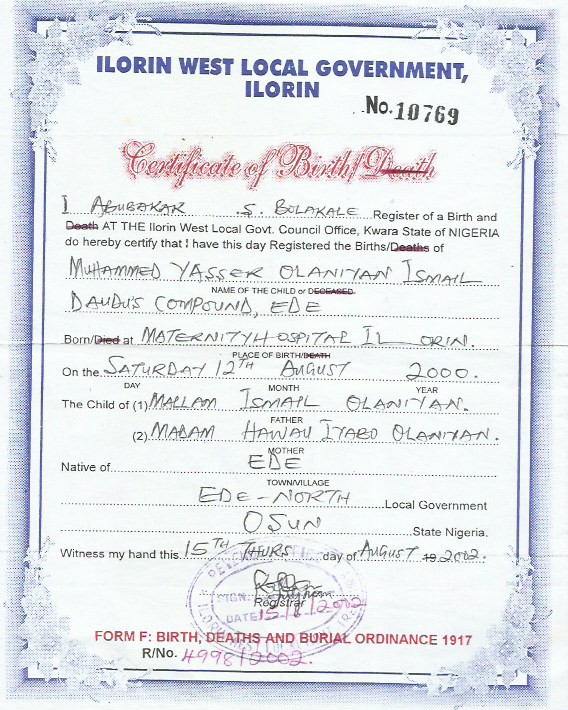 ILORIN WEST LOCAL GOVERNMENT,
ILORIN
No. 10769
Certificate of Birth/Death
I ABUBAKAR S. BOLAKALE Register of a Birth and
Death AT THE Ilorin West Local Govt. Council Office, Kwara State of NIGERIA
do hereby certify that I have this day Registered the Births/Deaths of
MUHAMMED YASSER OLANIYAN ISMAIL
NAME OF THE CHILD or DECEASED
DAUDU'S COMPOUND, EDE
Born/Died at MATERNITY HOSPITAL ILORIN.
PLACE OF BIRTH/DEATH
On the SATURDAY 12TH AUGUST 2000.
DAY MONTH YEAR
The Child of (1) MALLAM ISMAIL OLANIYAN.
FATHER
(2) MADAM HAWAU IYABO OLANIYAN.
MOTHER
Native of EDE
TOWN/VILLAGE
EDE-NORTH Local Government
OSUN State Nigeria.
Witness my hand this 15TH THURS day of AUGUST 19 2002.
Registrar
SIGN:
DATE 15/8/2002
FORM F: BIRTH, DEATHS AND BURIAL ORDINANCE 1917
R/No. 4998/2002.